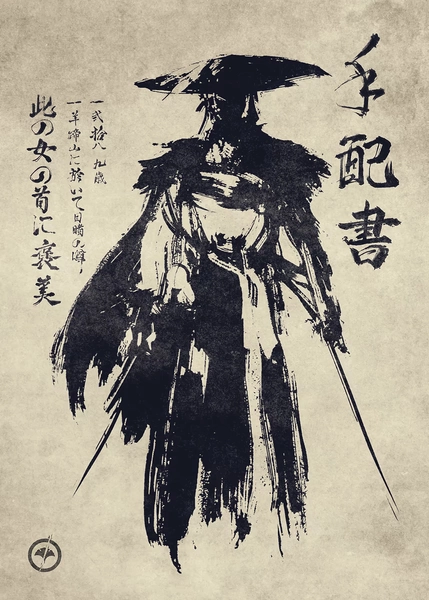 手配書
一弐拾八、九歳
一羊蹄山に於いて目睹の噂、
此の女の首に褒美